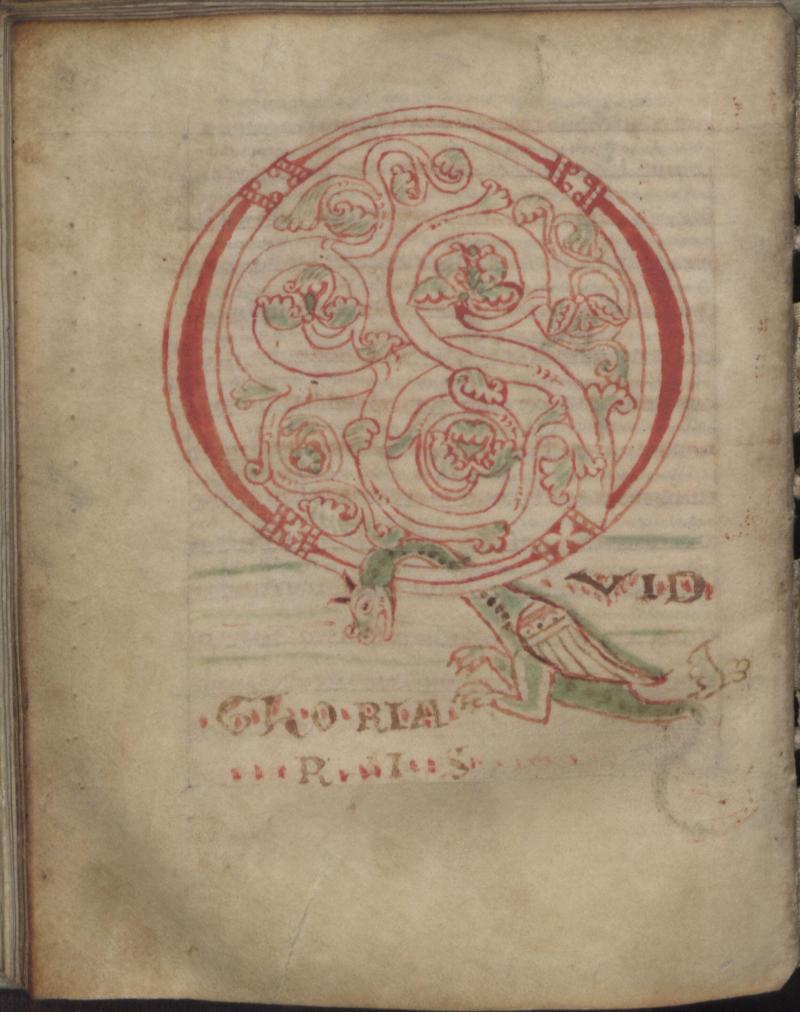 QVID
GLORIA
RIS